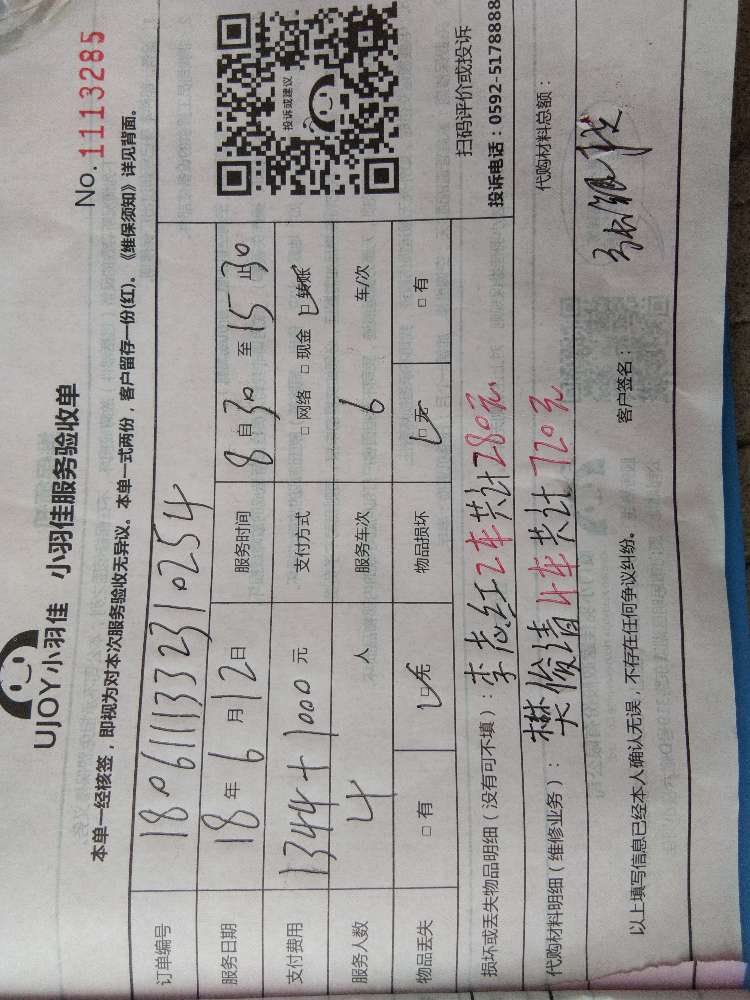 UJOY小羽佳 小羽佳服务验收单
No. 1113285
本单一经核签，即视为对本次服务验收无异议。本单一式两份，客户留存一份(红)。《维保须知》详见背面。
订单编号 1806111332310254
服务日期 18年6月12日 服务时间 8自30至15止30
支付费用 1344+1000元 支付方式 □网络 □现金 □转账
服务人数 4人 服务车次 6 车/次
物品丢失 □有 □无 物品损坏 □无 □有
投诉或建议
扫码评价或投诉
投诉电话：0592-5178888
损坏或丢失物品明细（没有可不填）：李志红2车共计280元
代购材料明细（维修业务）：樊俊清4车共计720元 代购材料总额：
以上填写信息已经本人确认无误，不存在任何争议纠纷。 客户签名：